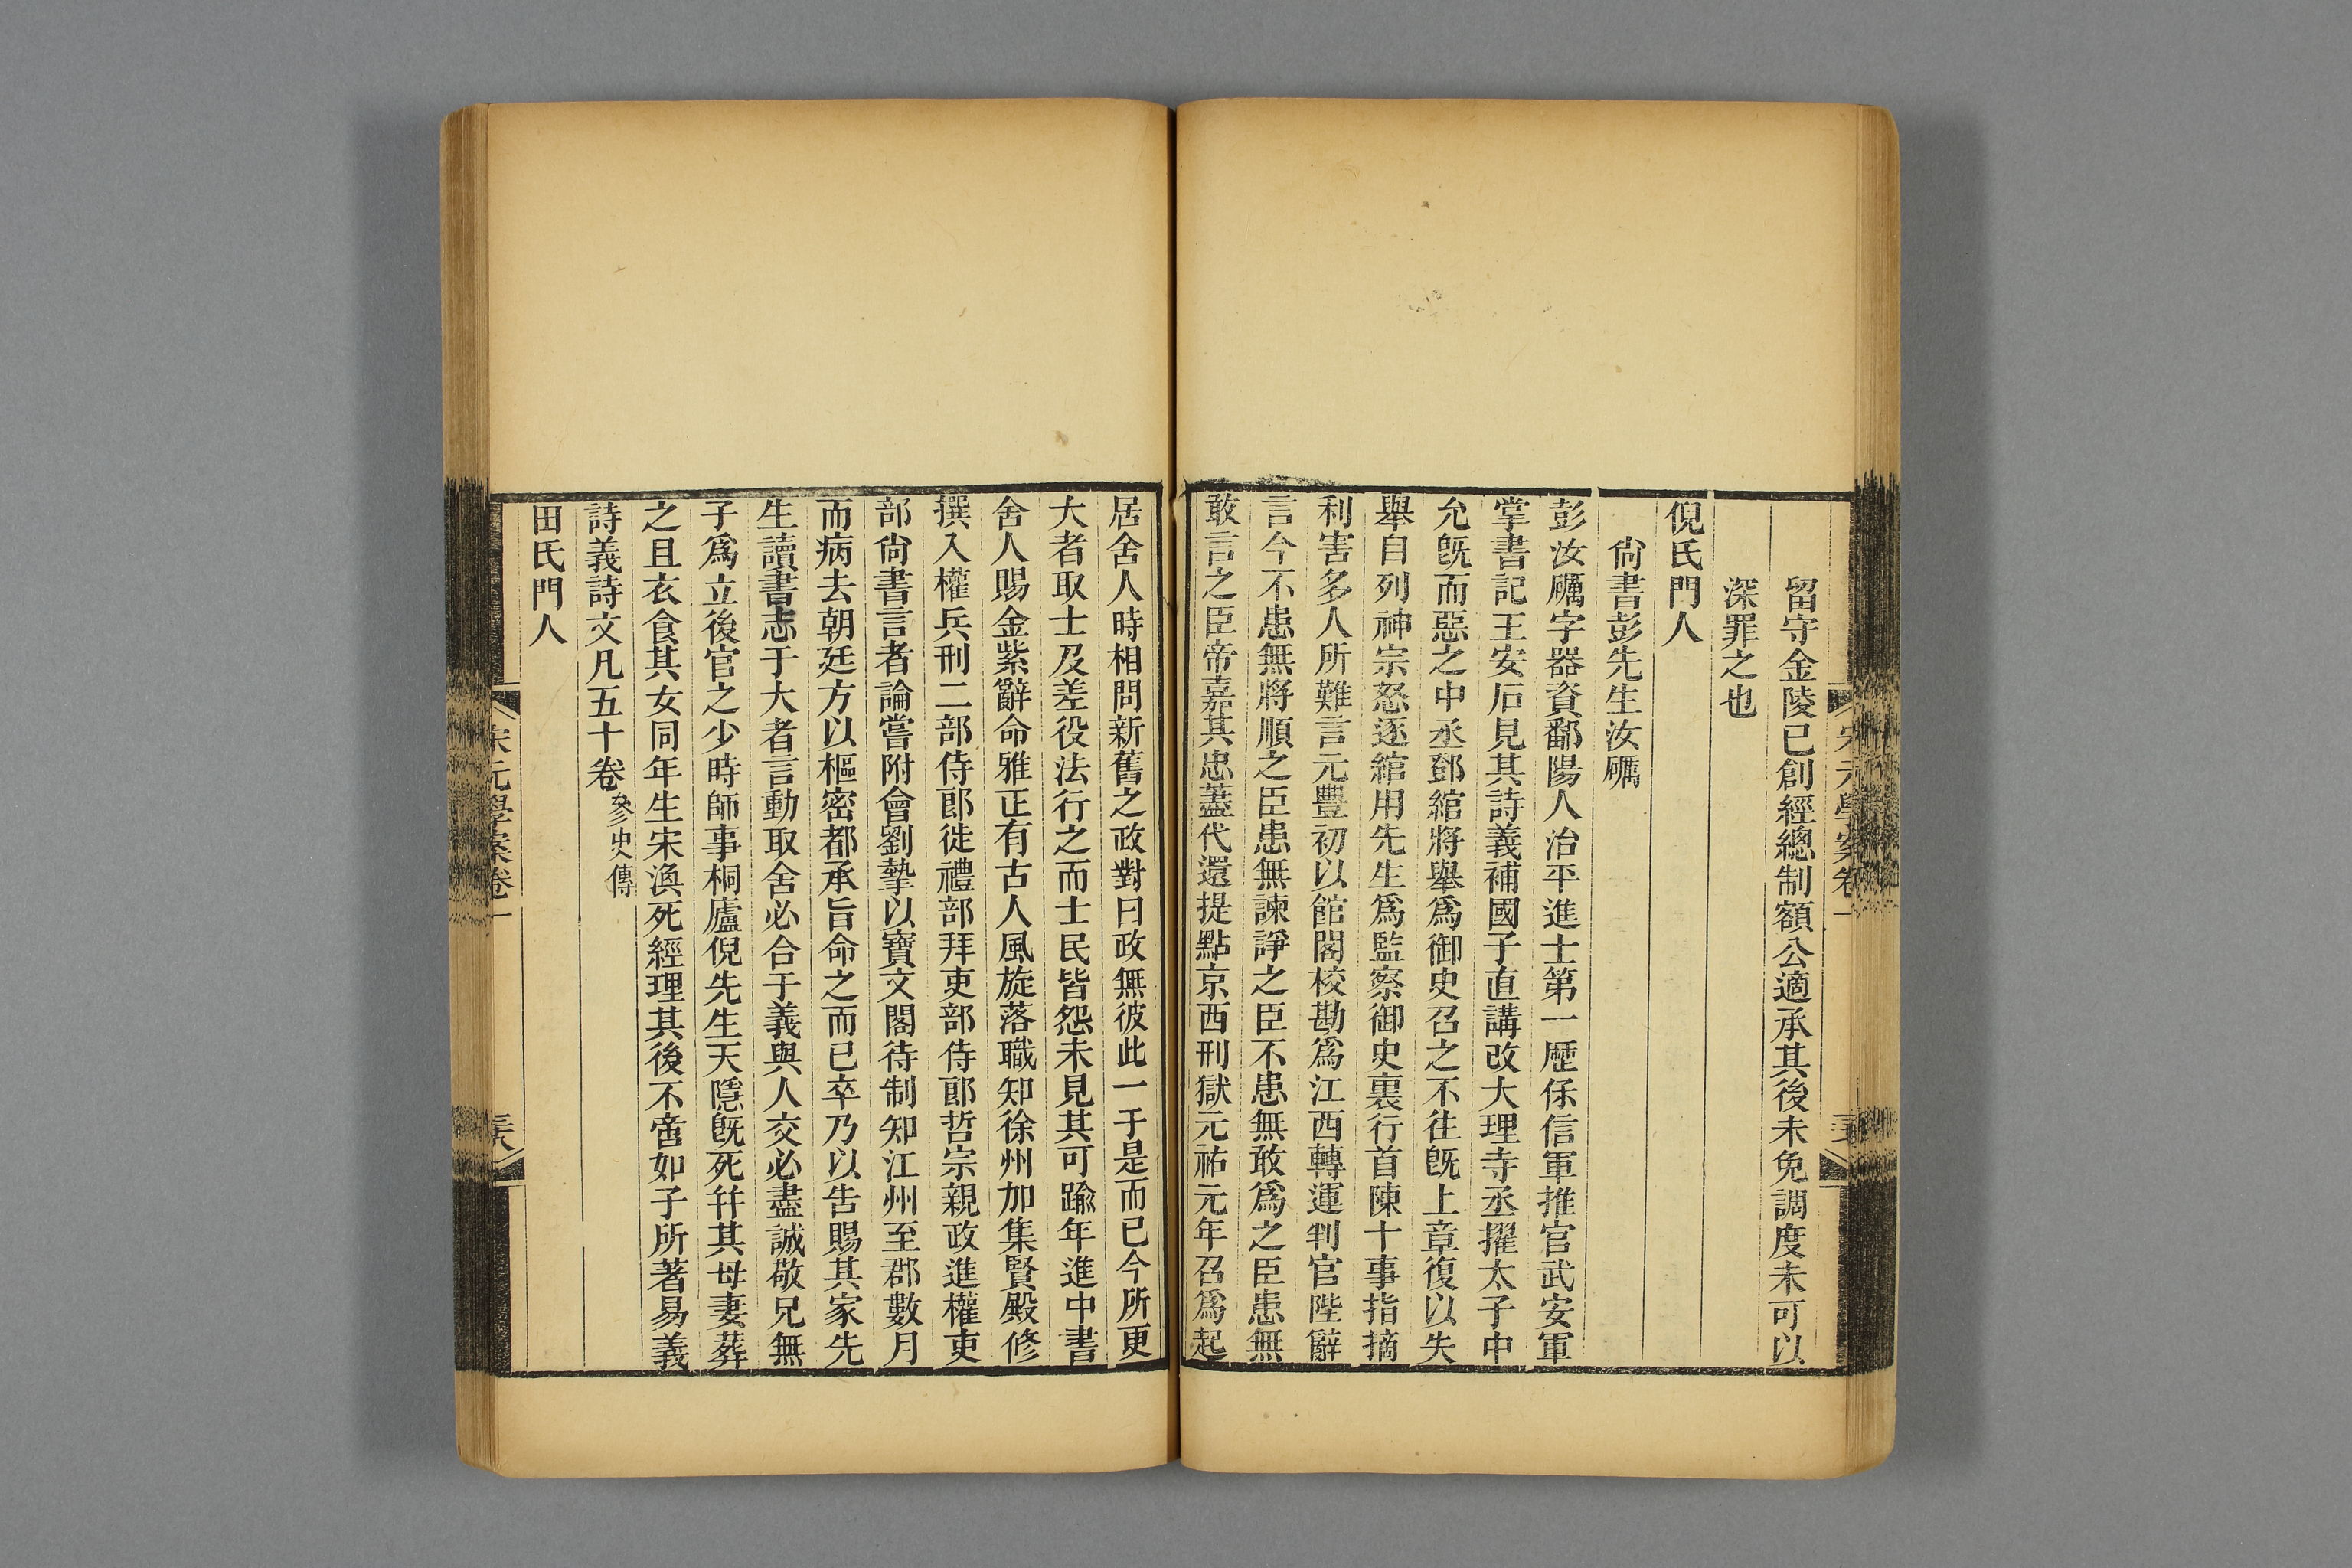 宋元學案卷一
留守金陵已創經總制額公適承其後未免調度未可以
深罪之也
倪氏門人
尙書彭先生汝礪
彭汝礪字器資鄱陽人治平進士第一歷保信軍推官武安軍
掌書記王安石見其詩義補國子直講改大理寺丞擢太子中
允旣而惡之中丞鄧綰將舉爲御史召之不往旣上章復以失
舉自列神宗怒逐綰用先生爲監察御史裏行首陳十事指摘
利害多人所難言元豐初以館閣校勘爲江西轉運判官陛辭
言今不患無將順之臣患無諫諍之臣不患無敢爲之臣患無
敢言之臣帝嘉其忠蓋代還提點京西刑獄元祐元年召爲起
居舍人時相問新舊之政對曰政無彼此一于是而已今所更
大者取士及差役法行之而士民皆怨未見其可踰年進中書
舍人賜金紫辭命雅正有古人風旋落職知徐州加集賢殿修
撰入權兵刑二部侍郎徙禮部拜吏部侍郎哲宗親政進權吏
部尙書言者論嘗附會劉摯以寶文閣待制知江州至郡數月
而病去朝廷方以樞密都承旨命之而已卒乃以告賜其家先
生讀書志于大者言動取舍必合于義與人交必盡誠敬兄無
子爲立後官之少時師事桐廬倪先生天隱旣死幷其母妻葬
之且衣食其女同年生宋渙死經理其後不啻如子所著易義
詩義詩文凡五十卷參史傳
田氏門人
宋元學案卷一
三八